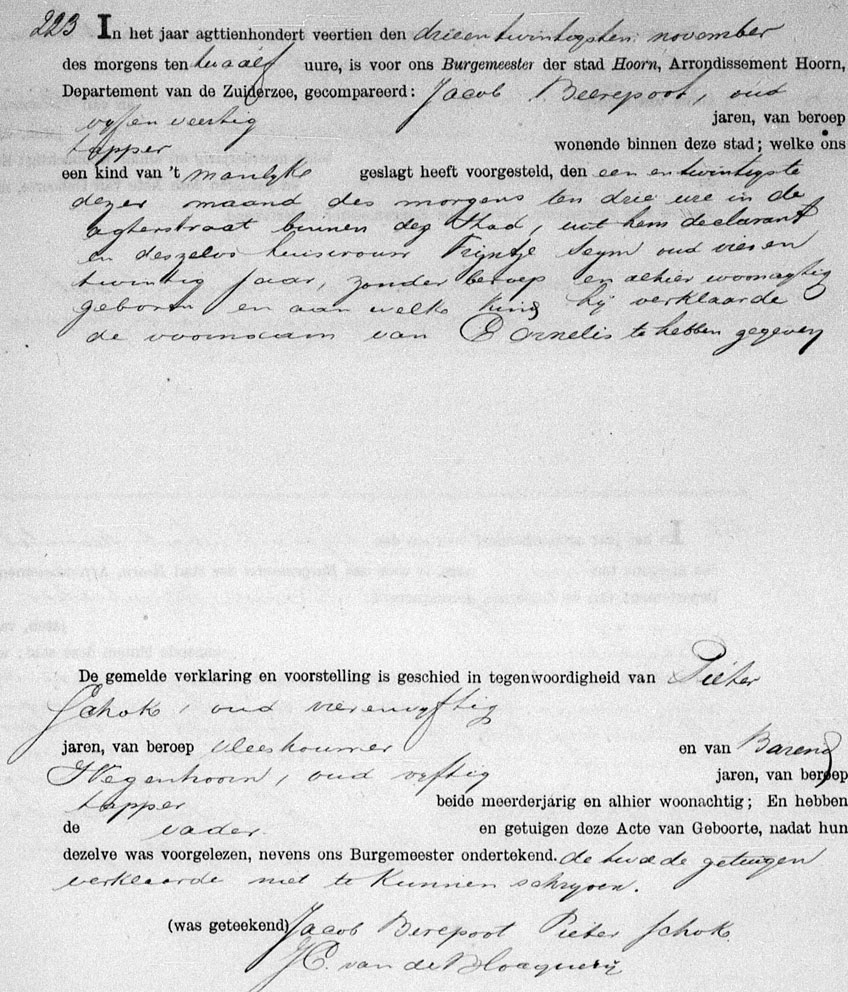 223 In het jaar agttienhonderd veertien den drieentwintigsten november
des morgens ten twaalf uure, is voor ons Burgemeester der stad Hoorn, Arrondissement Hoorn,
Departement van de Zuiderzee, gecompareerd: Jacob Beerepoot, oud
vyf en veertig jaren, van beroep
tapper wonende binnen deze stad; welke ons
een kind van 't manlyke geslagt heeft voorgesteld, den een en twintigste
dezer maand des morgens ten drie ure in de
agterstraat binnen dez Stad, uit hem declarant
en deszelvs huisvrouw Trijntje Seym oud vier en
twintig Jaar, zonder beroep en alhier woonagtig
geboren en aan welk kind hij verklaarde
de voornaam van Cornelis te hebben gegeven
De gemelde verklaring en voorstelling is geschied in tegenwoordigheid van Pieter
Schok, oud vierenvyftig
jaren, van beroep vleeshouwer en van Barend
Hegenhoorn, oud vyftig jaren, van beroep
tapper beide meerderjarig en alhier woonachtig; En hebben
de vader en getuigen deze Acte van Geboorte, nadat hun
dezelve was voorgelezen, nevens ons Burgemeester ondertekend. de twede getuigen
verklaarde niet te kunnen schryven.
(was geteekend) Jacob Berepoot Pieter Schok
J C. van de Blocquerij